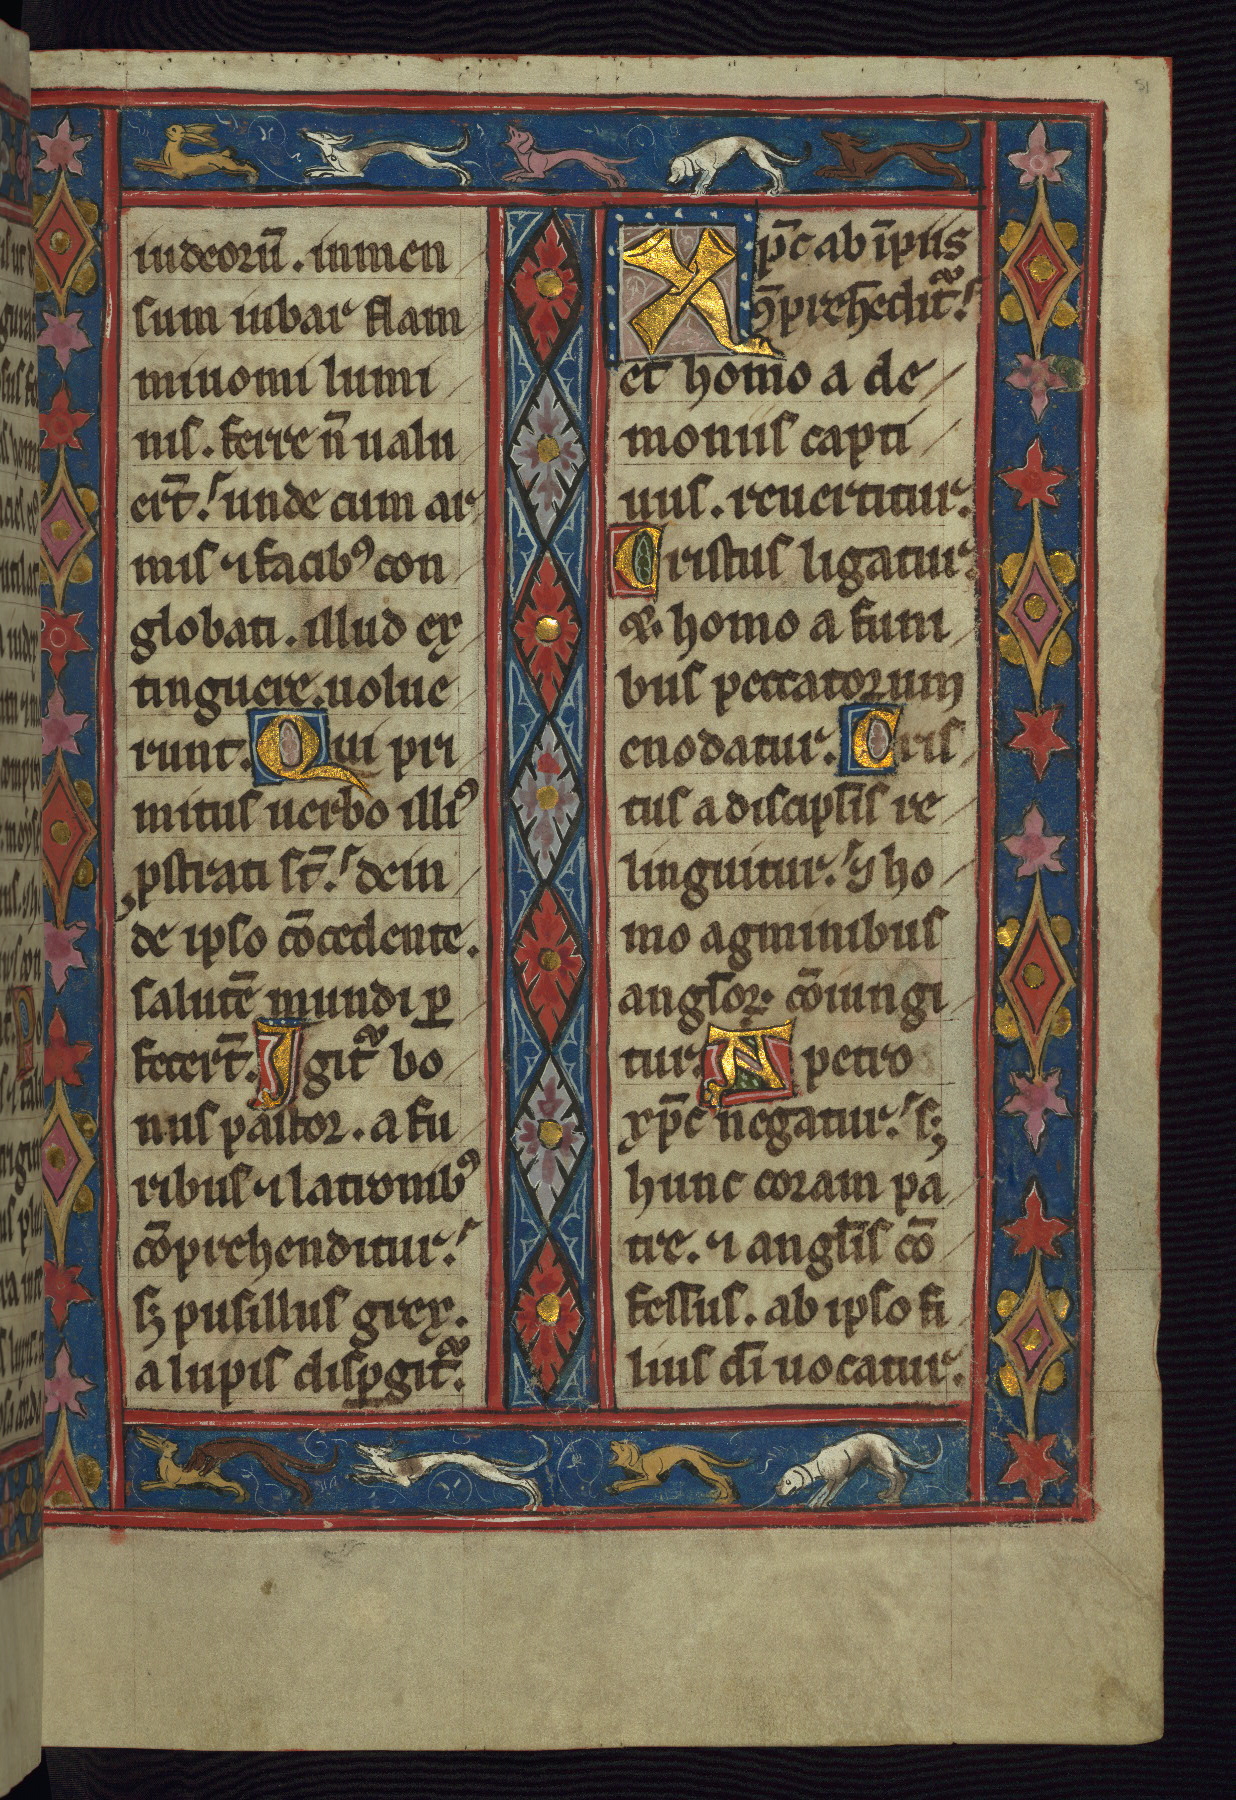 51
iudeoru̅. inmen
sum iubar flam
miuomi lumi
nis. ferre n̅ ualu
ert̅. unde cum ar
mis ⁊ facibꝰ con
globati. illud ex
tinguere. uolue
runt. Qui pri
mitus uerbo illiꝰ
ꝓstrati st̅. dein
de ipso co̅cedente.
salute̅ mundi ꝑ
fecert̅. Igit᷑ bo
nus pastor. a fu
ribus ⁊ latronibꝰ
co̅prehenditur.
sꝫ pusillus grex.
a lupis disꝑgit᷑.
Xp̅c ab i̅piis
ꝯprehe̅dit᷑.
et homo a de
moniis capti
uus. reuertitur.
Cristus ligatur.
⁊ homo a funi
bus peccatorum
enodatur. Cris
tus a discipl̅is re
linguitur. ⁊ ho
mo agminibus
angl̅oꝝ co̅iungi
tur. A petro
xp̅c negatur. sꝫ
hunc coram pa
tre. ⁊ angl̅is co̅
fessus. ab ipso fi
lius di̅ uocatur.